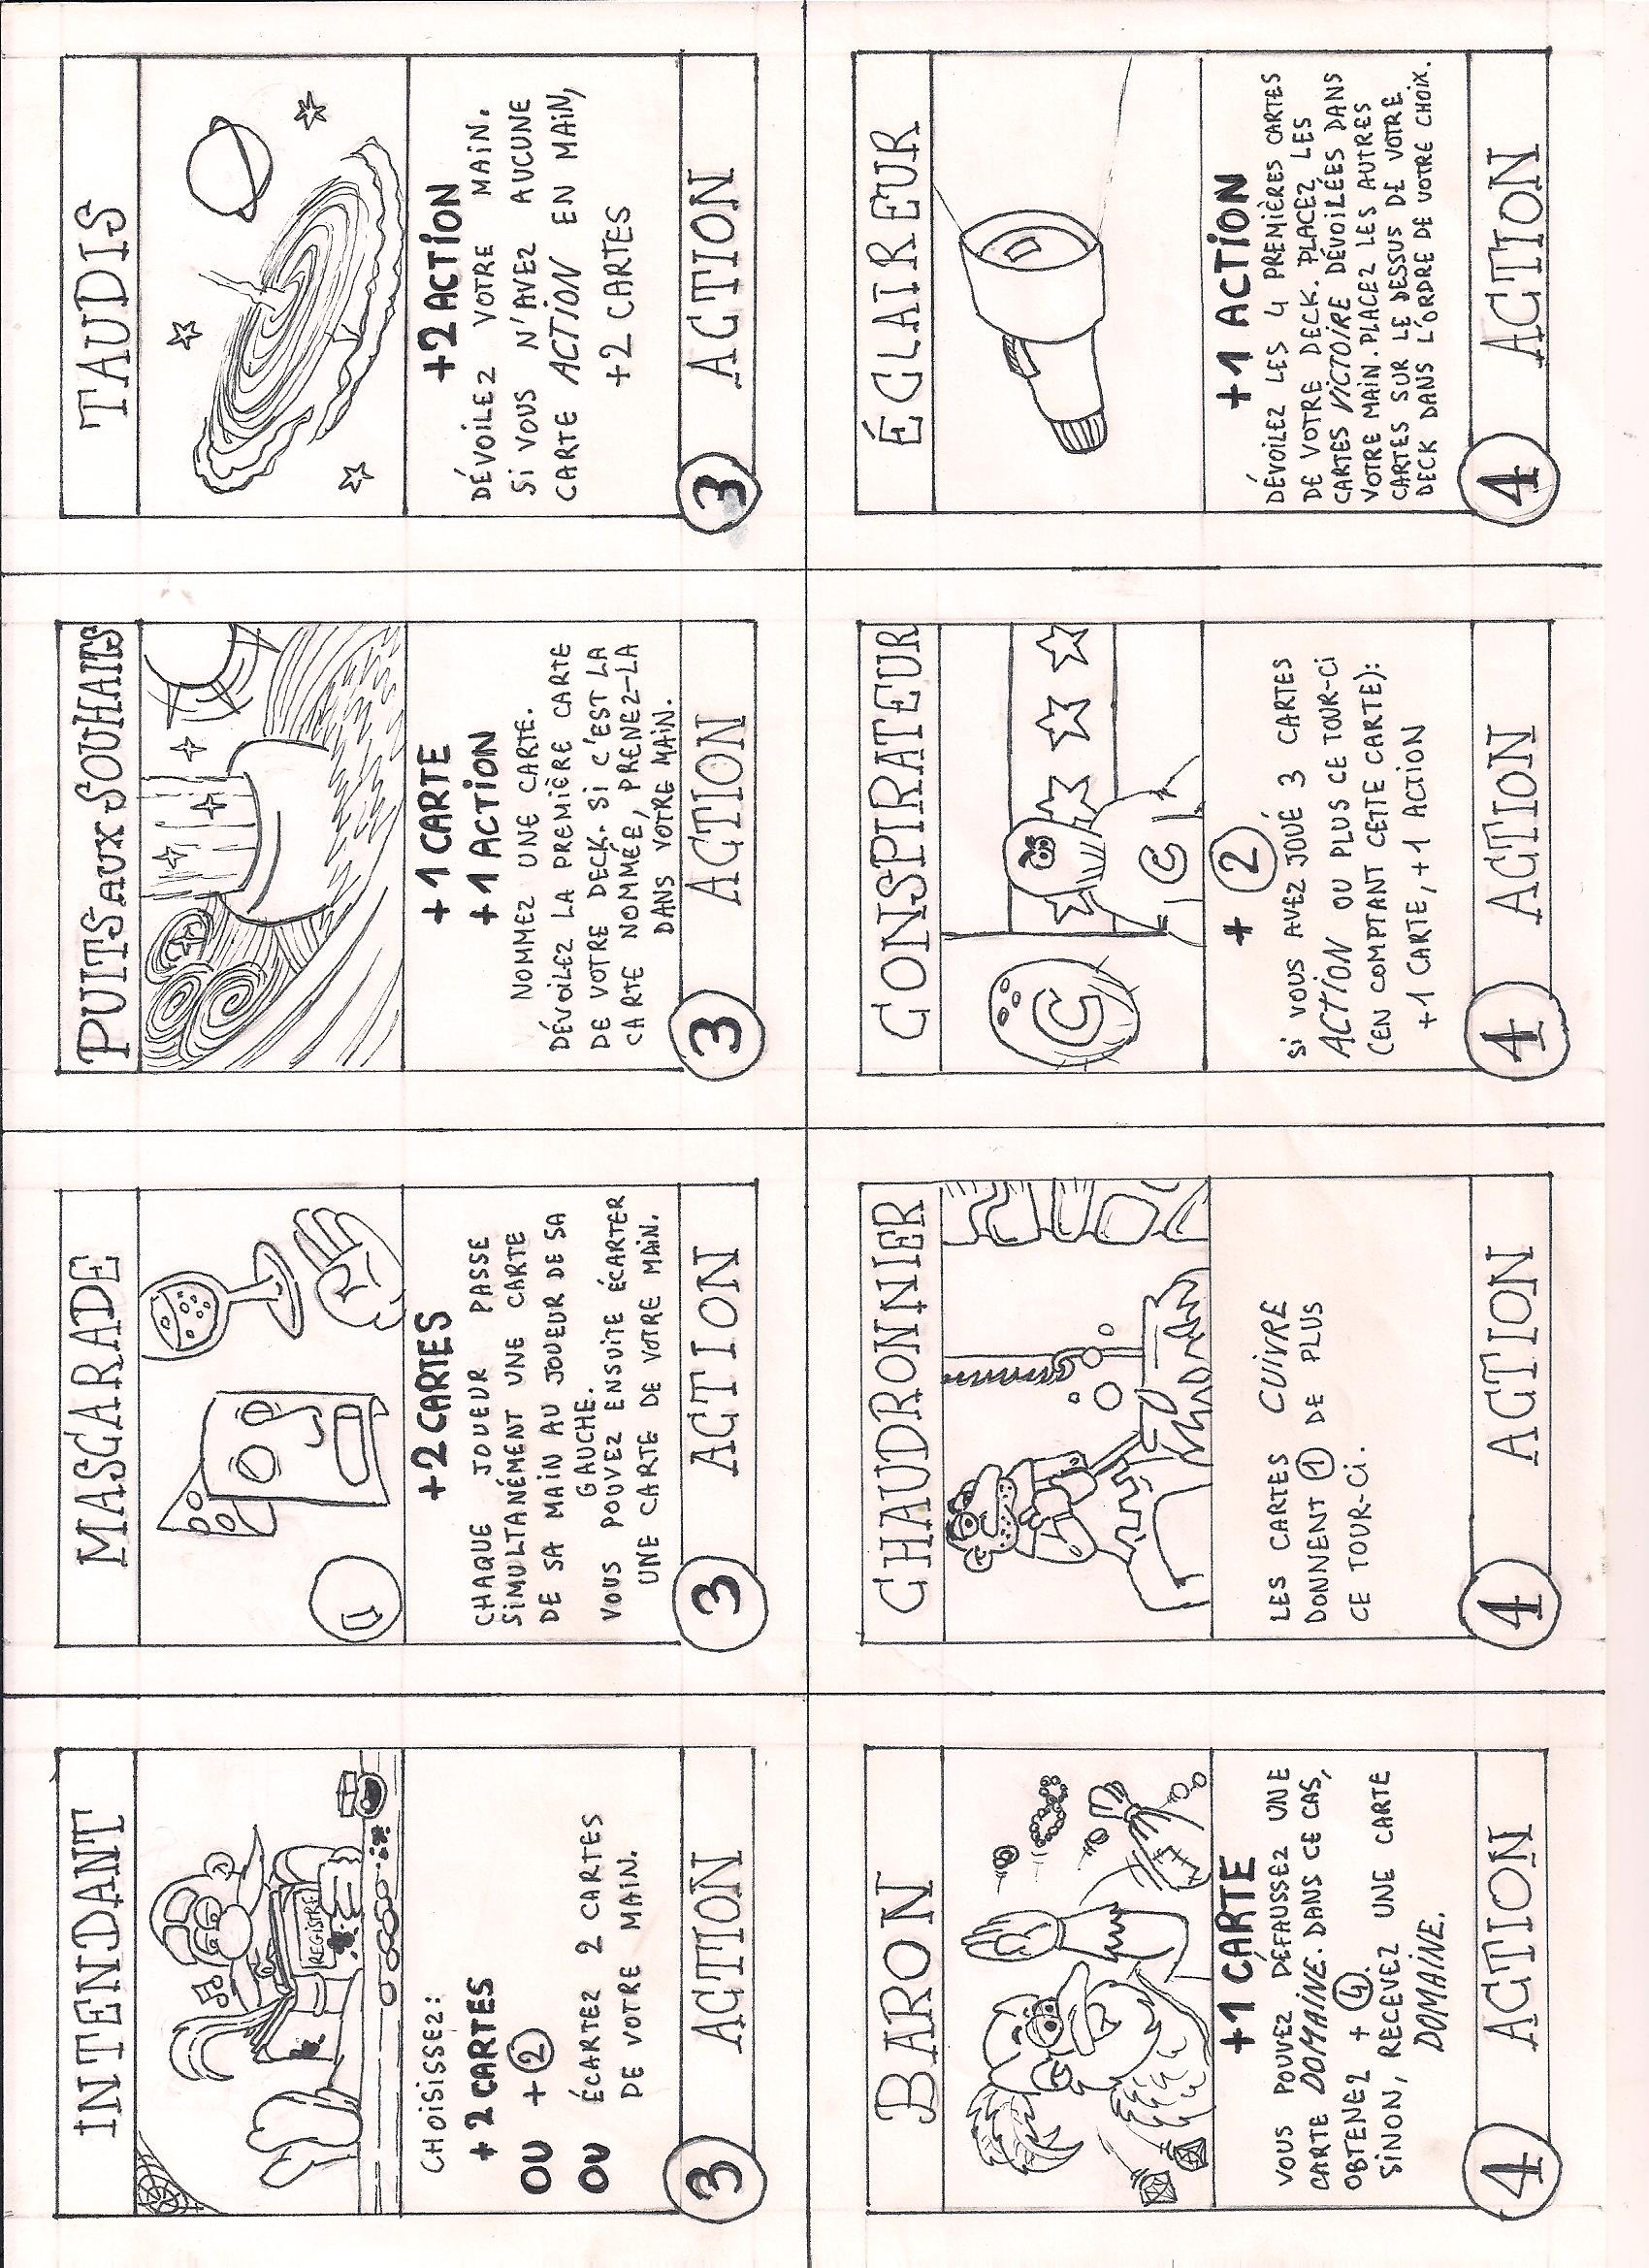 INTENDANT
REGISTRE
CHOISISSEZ:
+2 CARTES
OU +②
OU ÉCARTEZ 2 CARTES
DE VOTRE MAIN.
3
ACTION
MASCARADE
+2 CARTES
CHAQUE JOUEUR PASSE
SIMULTANÉMENT UNE CARTE
DE SA MAIN AU JOUEUR DE SA
GAUCHE.
VOUS POUVEZ ENSUITE ÉCARTER
UNE CARTE DE VOTRE MAIN.
3
ACTION
PUITS AUX SOUHAITS
+1 CARTE
+1 ACTION
NOMMEZ UNE CARTE.
DÉVOILEZ LA PREMIÈRE CARTE
DE VOTRE DECK. SI C'EST LA
CARTE NOMMÉE, PRENEZ-LA
DANS VOTRE MAIN.
3
ACTION
TAUDIS
+2 ACTION
DÉVOILEZ VOTRE MAIN.
SI VOUS N'AVEZ AUCUNE
CARTE ACTION EN MAIN,
+2 CARTES
3
ACTION
BARON
+1 CARTE
VOUS POUVEZ DÉFAUSSEZ UNE
CARTE DOMAINE. DANS CE CAS,
OBTENEZ + ④.
SINON, RECEVEZ UNE CARTE
DOMAINE.
4
ACTION
CHAUDRONNIER
LES CARTES CUIVRE
DONNENT ① DE PLUS
CE TOUR-CI.
4
ACTION
CONSPIRATEUR
C
C
+ ②
SI VOUS AVEZ JOUÉ 3 CARTES
ACTION OU PLUS CE TOUR-CI
(EN COMPTANT CETTE CARTE):
+1 CARTE, +1 ACTION
4
ACTION
ÉCLAIREUR
+1 ACTION
DÉVOILEZ LES 4 PREMIÈRES CARTES
DE VOTRE DECK. PLACEZ LES
CARTES VICTOIRE DÉVOILÉES DANS
VOTRE MAIN. PLACEZ LES AUTRES
CARTES SUR LE DESSUS DE VOTRE
DECK DANS L'ORDRE DE VOTRE CHOIX.
4
ACTION